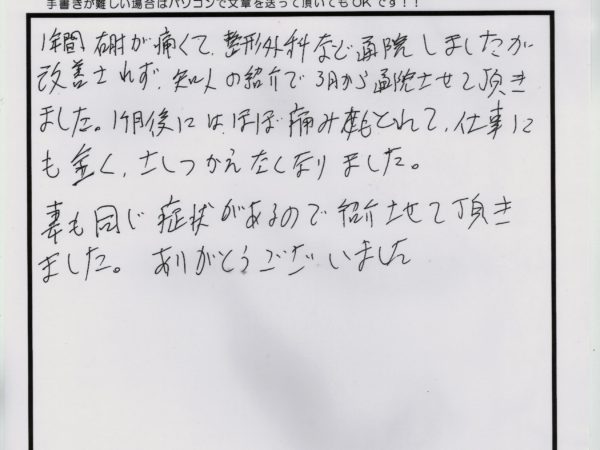 手書きが難しい場合はパソコンで文章を送って頂いてもOKです！！
1年間 右肘が痛くて、整形外科など通院しましたが
改善されず、知人の紹介で3月から通院させて頂き
ました。1ヶ月後には、ほぼ痛みもとれて、仕事に
も全く、さしつかえなくなりました。
妻も同じ症状があるので紹介させて頂き
ました。ありがとうございました